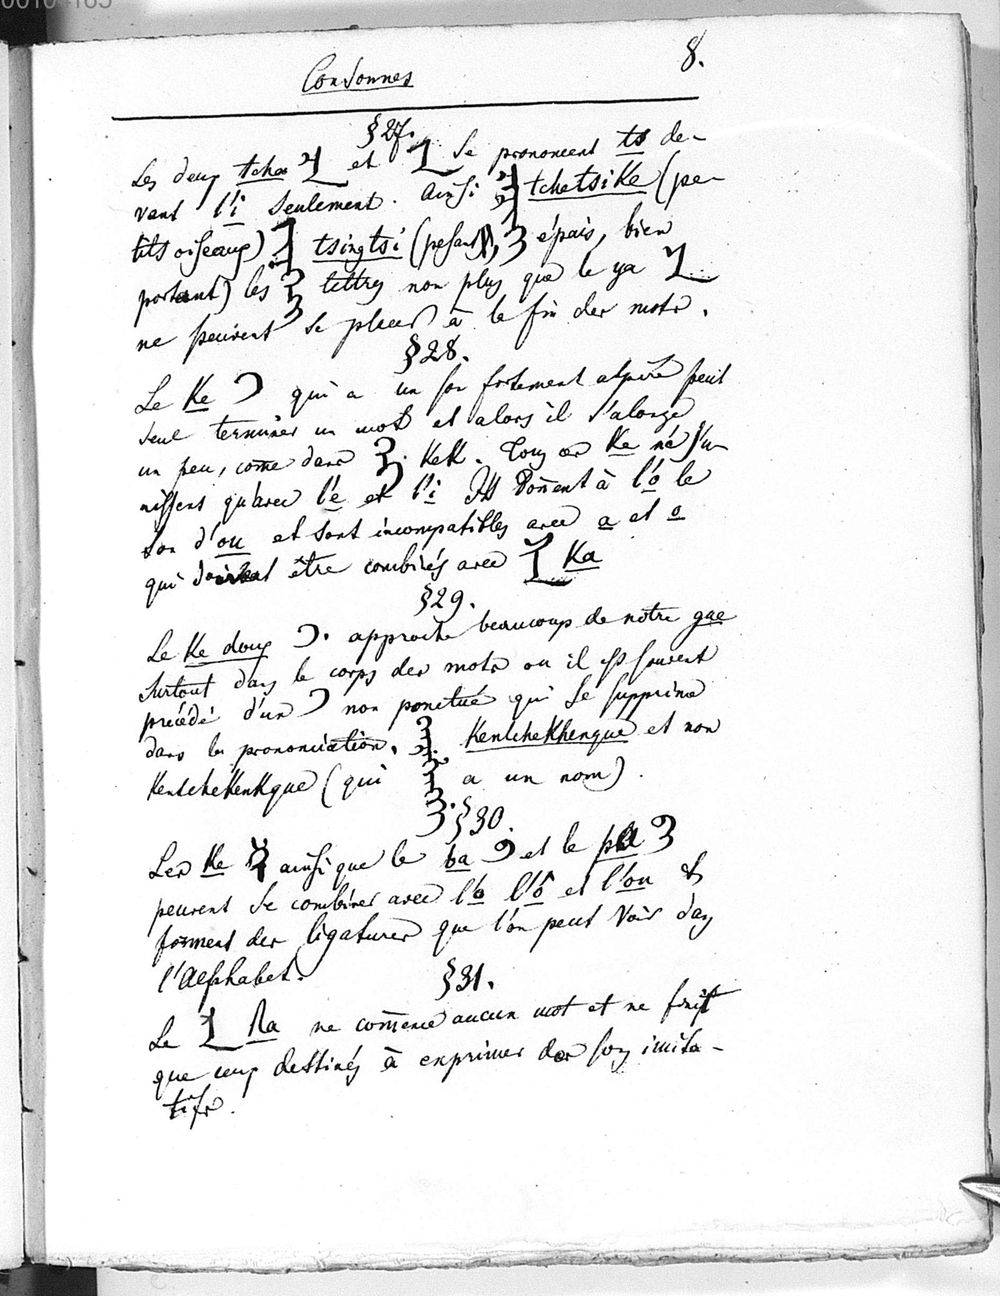 00104165
Consonnes
8.
§27.
Les deux tcha et se prononcent ts de-
vant l'i seulement. Ainsi tchetsike (pe-
tits oiseaux) tsingtsi (pesant, épais, bien
portant) les lettres non plus que le ya
ne peuvent se placer à la fin des mots.
§28.
Le Ke qui a un son fortement aspiré peut
seul terminer un mot et alors il s'alonge
un peu, come dans KeK. Tous ces Ke ne s'u-
nissent qu'avec l'e et l'i Ils donnent à l'ô le
son d'ou et sont incompatibles avec a et o
qui doivent être combinés avec Ka
§29.
Le Ke doux approche beaucoup de notre gue
surtout dans le corps des mots ou il est souvent
précédé d'un non ponctué qui se supprime
dans la prononciation. Kentchekhengue et non
KentcheKenKgue (qui a un nom).
§30.
Les Ke ainsi que le ba et le pa
peuvent se combiner avec l'o l'ô et l'ou &
forment des ligatures que l'on peut voir dans
l'Alphabet.
§31.
Le Ra ne comence aucun mot et ne finit
que ceux destinés à exprimer des sons imita-
tifs.